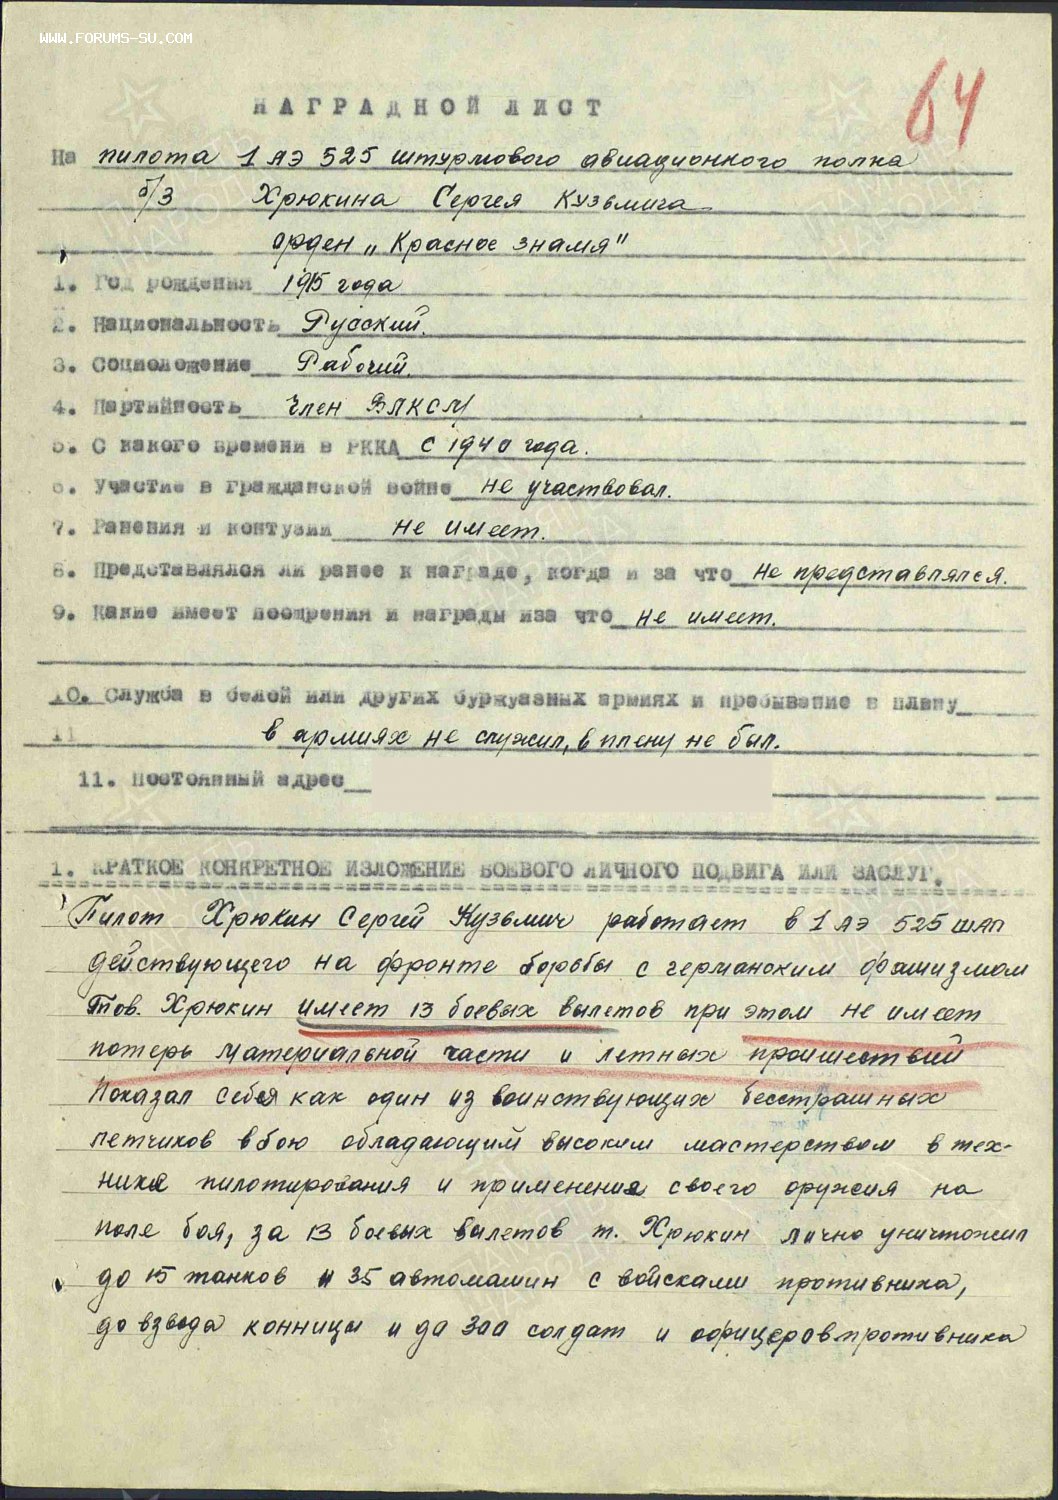 WWW.FORUMS-SU.COM
64
НАГРАДНОЙ ЛИСТ
На пилота 1 АЭ 525 штурмового авиационного полка
б/з Хрюкина Сергея Кузьмича
орден „Красное знамя"
1. Год рождения 1915 года
2. Национальность Русский.
3. Соцположение Рабочий.
4. Партийность Член ВЛКСМ
5. С какого времени в РККА с 1940 года.
6. Участие в гражданской войне не участвовал.
7. Ранения и контузии не имеет.
8. Представлялся ли ранее к награде, когда и за что не представлялся.
9. Какие имеет поощрения и награды иза что не имеет.
10. Служба в белой или других буржуазных армиях и пребывание в плену
11 в армиях не служил, в плену не был.
11. Постоянный адрес
1. КРАТКОЕ КОНКРЕТНОЕ ИЗЛОЖЕНИЕ БОЕВОГО ЛИЧНОГО ПОДВИГА ИЛИ ЗАСЛУГ.
Пилот Хрюкин Сергей Кузьмич работает в 1 АЭ 525 ШАП
действующего на фронте борьбы с германским фашизмом
Тов. Хрюкин имеет 13 боевых вылетов при этом не имеет
потерь материальной части и летных проишествий
Показал себя как один из воинствующих бесстрашных
летчиков в бою обладающим высоким мастерством в тех-
нике пилотирования и применения своего оружия на
поле боя, за 13 боевых вылетов т. Хрюкин лично уничтожил
до 15 танков и 35 автомашин с войсками противника,
до взвода конницы и до 300 солдат и офицеров противника